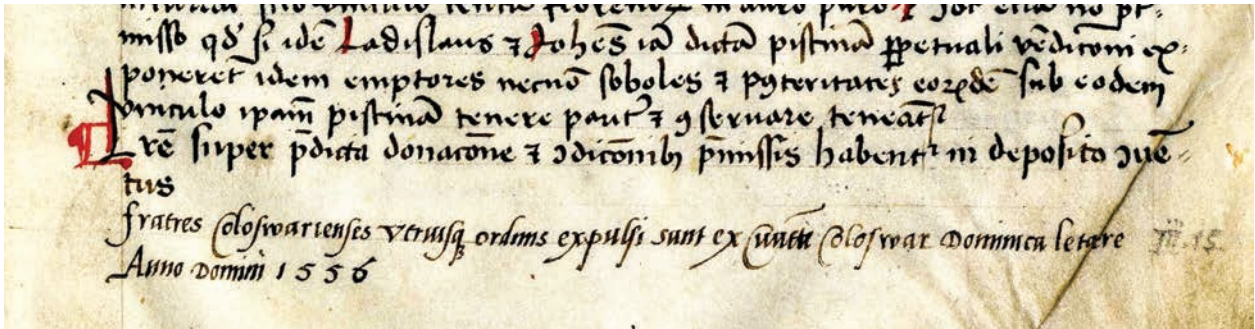 misso qd̄ si idē Ladislaus ⁊ Johēs iā dictā piscinā ꝑpetuali vēdicōni ex⸗
poneret̄ idem emptores necnō soboles ⁊ pꝯteritates eorꝝdē sub eodem
vinculo ip̄am piscinā tenere parit̄ ⁊ ꝯservare teneāt̄
Lr̄e super p̄dicta donacōne ⁊ ꝯdicōnibꝫ p̄missis habent̄ in deposito ꝯvē⸗
tus
fratres Coloswarienses vtriusqꝫ ordinis expulsi sunt ex Coloswar Dominica letare
Anno Domini 1556
III. 15.